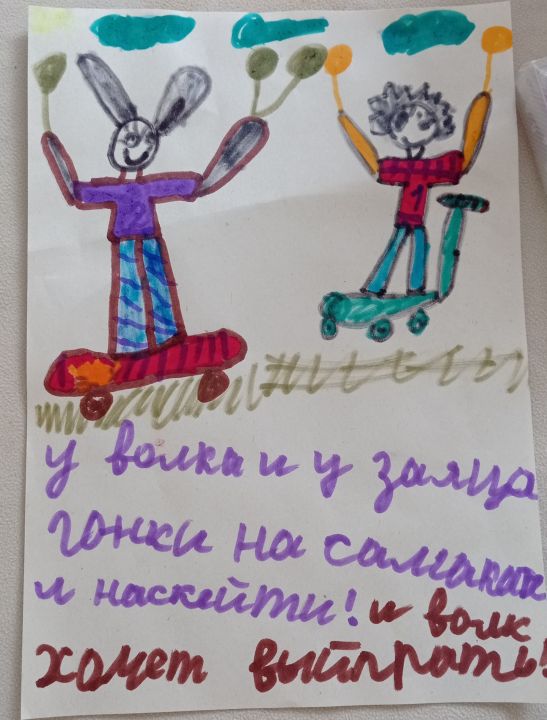 1
у волка и у заяца
гонки на самакати
и наскейти! и волк
хочет выйграть!